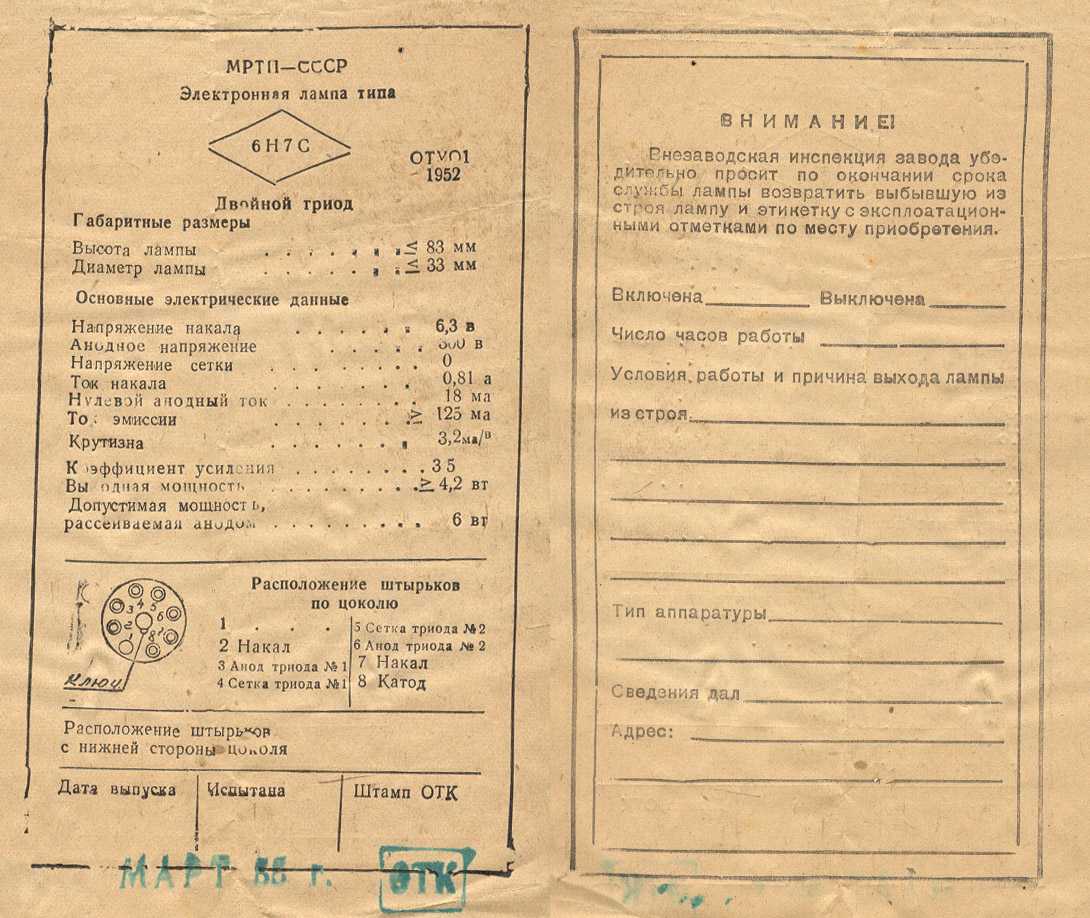 МРТП—СССР
Электронная лампа типа
6Н7С
1952
Двойной триод
Габаритные размеры
Высота лампы . . . . . . ≤ 83 мм
Диаметр лампы . . . . . . ≤ 33 мм
Основные электрические данные
Напряжение накала . . . . . . 6,3 в
Анодное напряжение . . . . . в
Напряжение сетки . . . . . . . 0
Ток накала . . . . . . . . 0,81 а
Нулевой анодный ток . . . . . . . 18 ма
эмиссии . . . . . . . ≥ 125 ма
Крутизна . . . . . . . 3,2ма/в
Коэффициент усиления . . . . . . . . 35
Выходная мощность . . . . . . . . ≥ 4,2 вт
Допустимая мощность,
рассеиваемая анодом . . . . . . . . . 6 вт
Расположение штырьков
по цоколю
3 4 5 6 2 7 1 8
Ключ
1 . . . .
2 Накал
3 Анод триода №1
4 Сетка триода №1
5 Сетка триода №2
6 Анод триода № 2
7 Накал
8 Катод
Расположение штырьков
с нижней стороны цоколя
Дата выпуска Испытана Штамп ОТК
МАРТ 55 г. ОТК
ВНИМАНИЕ!
Внезаводская инспекция завода убе-
дительно просит по окончании срока
службы лампы возвратить выбывшую из
строя лампу и этикетку с эксплоатацион-
ными отметками по месту приобретения.
Включена Выключена
Число часов работы
Условия работы и причина выхода лампы
из строя.
Тип аппаратуры
Сведения дал
Адрес: